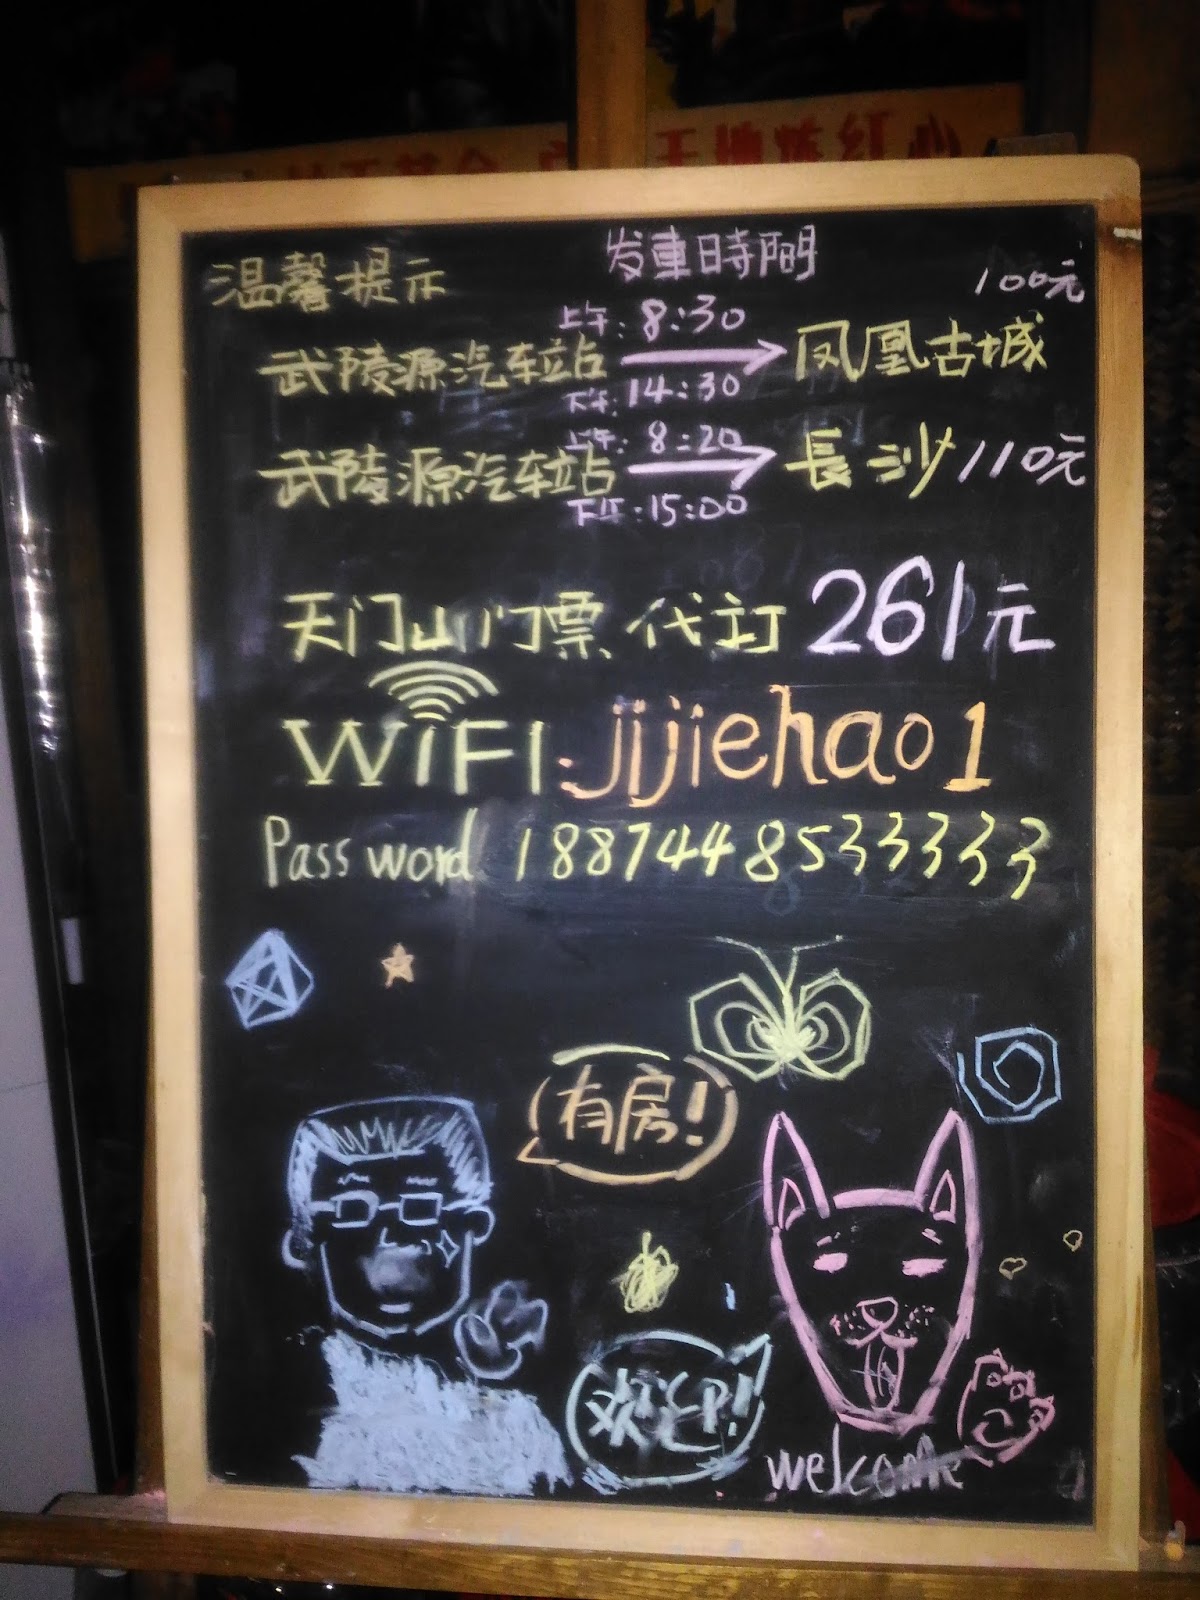 天地炼红心
发車時間
温馨提示
100元
上午: 8:30
武陵源汽车站 凤凰古城
下午: 14:30
上午: 8:20
武陵源汽车站 長沙 110元
下午: 15:00
天门山门票 代订 261元
WiFI: jijiehao1
Password 1887448533333
有房!
欢迎!
welcome